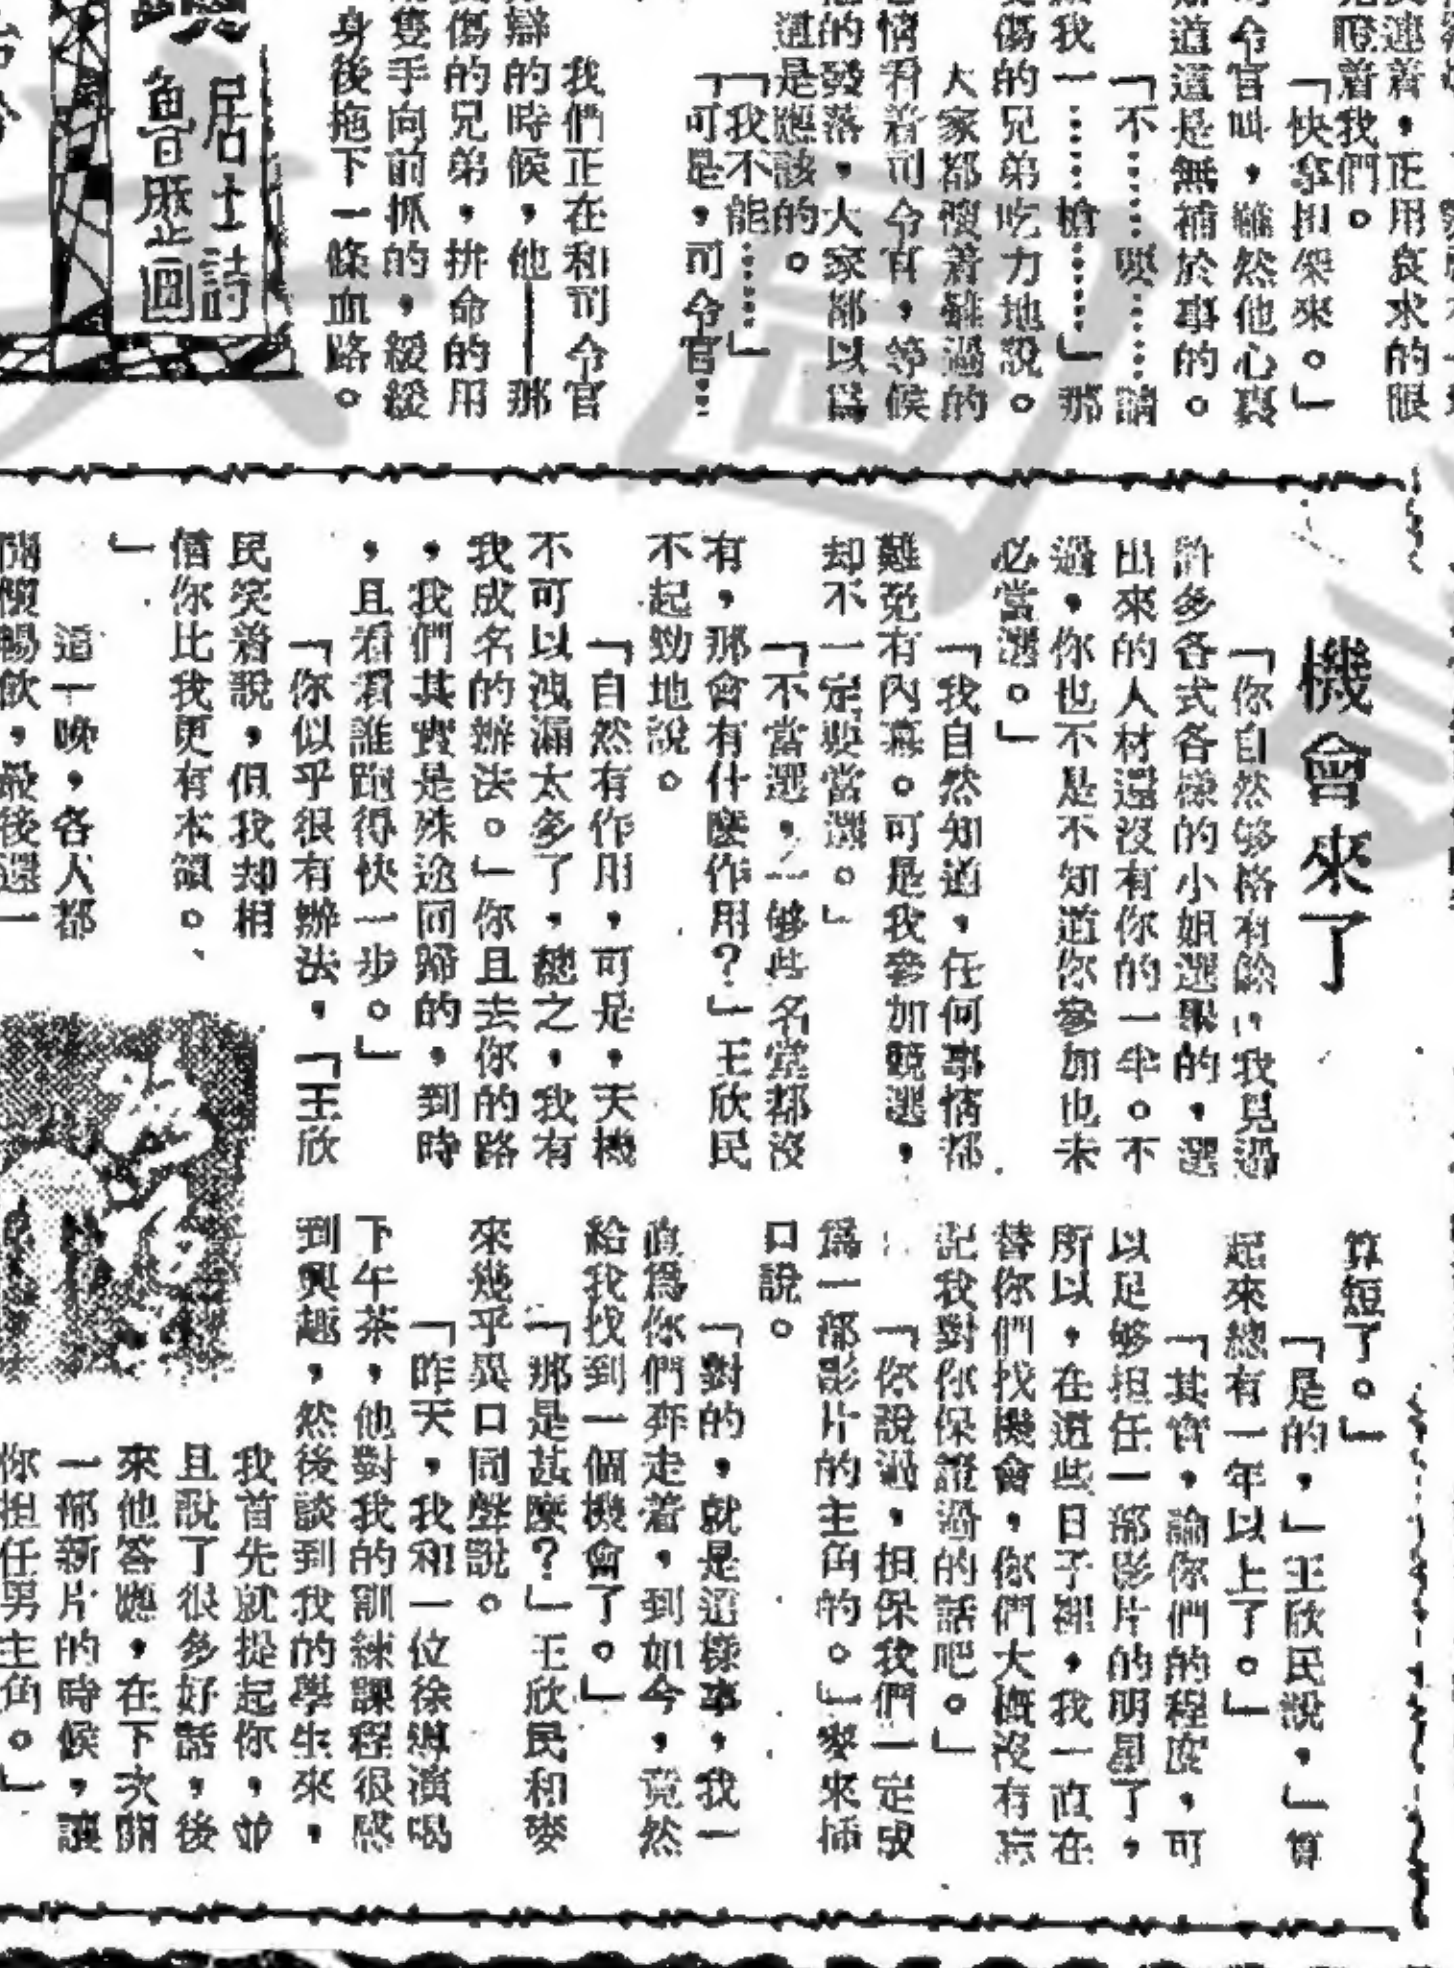 快連着，正用哀求的眼
瞪着我們。
「快拿担架來。」
司令官叫，雖然他心裏
知道這是無補於事的。
「不………要………請
我一………槍………」那
受傷的兄弟吃力地說。
大家都懷着難過的
心情看着司令官，等候
他的發落，大家都以爲
這是應該的。
「我不能………」
「可是，司令官…
我們正在和司令官
辯的時候，他——那
傷的兄弟，拚命的用
隻手向前抓的，緩緩
身後拖下一條血路。
居士詩
魯歷画
機會來了
「你自然够格有餘，我見過
許多各式各樣的小姐選舉的，選
出來的人材還沒有你的一半。不
過，你也不是不知道你參加也未
必當選。」
「我自然知道，任何事情都
難免有內幕。可是我參加競選，
却不一定要當選。」
「不當選，一够些名堂都沒
有，那會有什麼作用？」王欣民
不起勁地說。
「自然有作用，可是，天機
不可以洩漏太多了，總之，我有
我成名的辦法。」你且去你的路
，我們其實是殊途同歸的，到時
，且看看誰跑得快一步。」
「你似乎很有辦法，「王欣
民笑着說，但我却相
信你比我更有本領。、
」
這一晚，各人都
開懷暢飲，最後還一
算短了。」
「是的，」王欣民說，」算
起來總有一年以上了。」
「其實，論你們的程度，可
以足够担任一部影片的明星了，
所以，在這些日子裡，我一直在
替你們找機會，你們大概沒有忘
記我對你保證過的話吧。」
「你說過，担保我們一定成
爲一部影片的主角的。」麥來插
口說。
「對的，就是這樣事，我一
直爲你們奔走着，到如今，竟然
給我找到一個機會了。」
「那是甚麼？」王欣民和麥
來幾乎異口同聲說。
「昨天，我和一位徐導演喝
下午茶，他對我的訓練課程很感
到興趣，然後談到我的學生來，
我首先就提起你，並
且說了很多好話，後
來他答應，在下次開
一部新片的時候，讓
你担任男主角。」